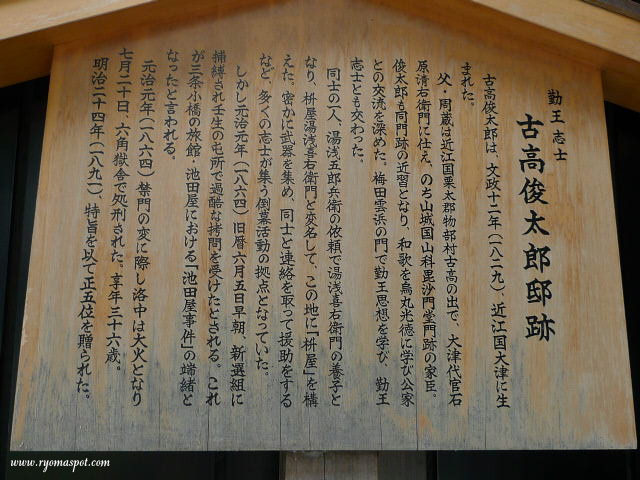 勤王志士
古高俊太郎邸跡
古高俊太郎は、文政十二年（一八二九）、近江国大津に生
まれた。
父・周蔵は近江国栗太郡物部村古高の出で、大津代官石
原清右衛門に仕え、のち山城国山科毘沙門堂門跡の家臣。
俊太郎も同門跡の近習となり、和歌を烏丸光徳に学び公家
との交流を深めた。梅田雲浜の門で勤王思想を学び、勤王
志士とも交わった。
同士の一人、湯浅五郎兵衛の依頼で湯浅喜右衛門の養子と
なり、枡屋湯浅喜右衛門と変名して、この地に「枡屋」を構
えた。密かに武器を集め、同士と連絡を取って援助をする
など、多くの志士が集う倒幕活動の拠点となっていた。
しかし元治元年（一八六四）旧暦六月五日早朝、新選組に
捕縛され壬生の屯所で過酷な拷問を受けたとされる。これ
が三条小橋の旅館・池田屋における「池田屋事件」の端緒と
なったと言われる。
元治元年（一八六四）禁門の変に際し洛中は大火となり
七月二十日、六角獄舎で処刑された。享年三十六歳。
明治二十四年（一八九一）、特旨を以て正五位を贈られた。
www.ryomaspot.com